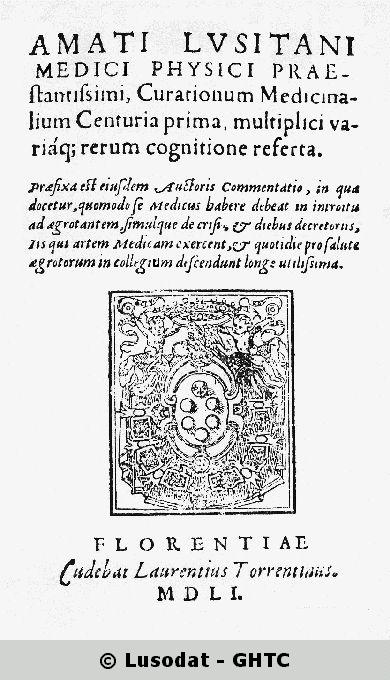 AMATI LVSITANI
MEDICI PHYSICI PRAE-
ſtantiſsimi, Curationum Medicina-
lium Centuria prima, multiplici va-
riáq; rerum cognitione referta.
Præfixa eſt eiuſdem Auctoris Commentatio, in qua
docetur, quomodo ſe Medicus habere debeat in introitu
ad ægrotantem, ſimulque de criſi, & diebus decretorijs,
Iis qui artem Medicam exercent, & quotidie pro ſalute
ægrotorum in collegium deſcendunt longe utiliſsima.
FLORENTIAE
Cudebat Laurentius Torrentinus.
MDLI.
© Lusodat - GHTC